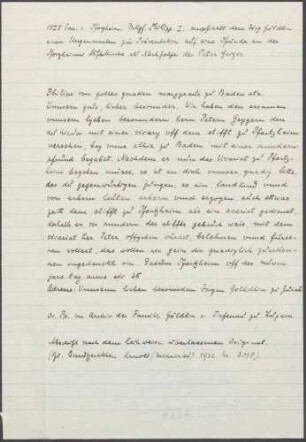 1528 Jan. 1. Pforzheim. Mkgf. Philipp I. empfiehlt dem Jörg Göldlin
einen Ungenannten zur Präsentation auf eine Pfründe an der
Pforzheimer Stiftskirche als Nachfolger des Peter Geiger.
Philips von gottes gnaden marggrave zu Baden etc
Unnsern grus, lieber besonnder. Wir haben den ersamen
unnsern lieben besonndern hern Petern Geygern der
mit einer vicary uff dem stifft zu Pfortzheim
versehen, by unns alhie zu Baden mit einer anndern
pfründ begabet. Nachdem er nun das Vicariat zu Pfortz-
heim begeben müsse, so ist an dich unnser gnedig bitt,
das du gegenwürtigen zöugern, so ein landkind und
von erbarn leüten erborn und erzogen, auch etwan
zeit dem stifft zu Pfortzheim als ein gedienet,
deshalb er vor anndern des stiffts gebrüch weis, mit dem
vicariat her Peter uffgeben belehnen und
wollest, das wollen wir gein dir gnediglich
ungedenckht ein. Datum Pfortzheim uff des nüwen
jars tag anno etc 28
Adresse: Unnserm lieben besonndern Jorgen Göldlin zu Zürch
Or. Pp. im Archiv der Familie Göldlin v. Tiefenau zu Luzern.
Abschrift nach dem leihweise überlassenen Original.